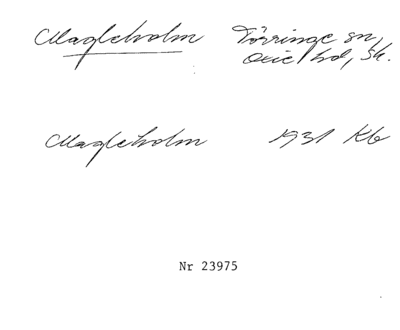 Magleholm Törringe sn,
Oxie hd, Sk.
Magleholm 1931 Kb
Nr 23975